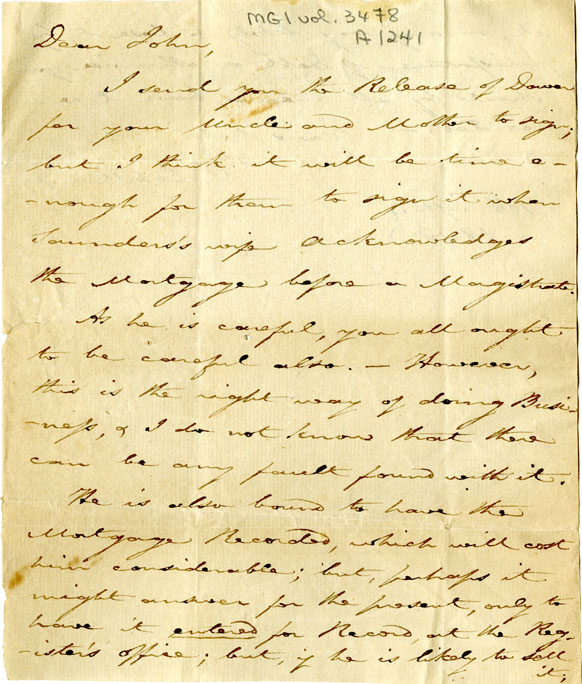 MG1 vol. 3478
A1241
Dear John,
I send you the Release of Dower
for your Uncle and Mother to sign;
but I think it will be time e-
-nough for them to sign it when
Saunders's wife acknowledges
the Mortgage before a Magistrate.
As he is careful, you all ought
to be careful also. — However,
this is the right way of doing Busi-
-ness, & I do not know that there
can be any fault found with it.
He is also bound to have the
Mortgage Recorded, which will cost
him considerable; but, perhaps it
might answer for the present, only to
have it entered for Record, at the Reg-
-ister's office; but, if he is likely to sell
it;